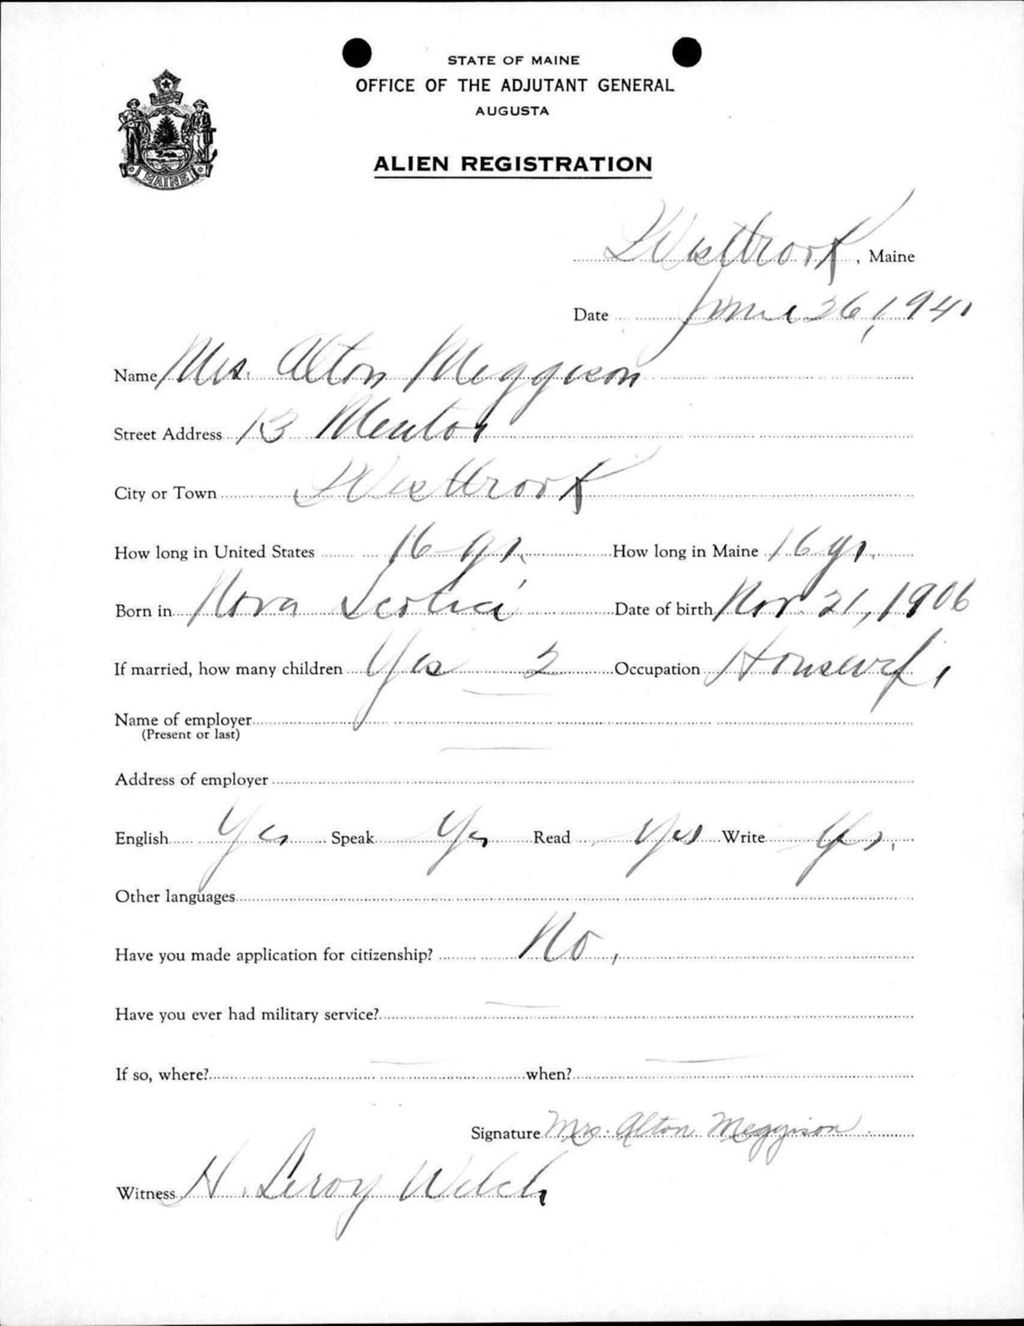 STATE OF MAINE
OFFICE OF THE ADJUTANT GENERAL
AUGUSTA
MAINE
ALIEN REGISTRATION
Westbrook, Maine
Date June 26, 1940
Name Mrs. Alton Meggison
Street Address 13 Mentor
City or Town Westbrook
How long in United States 16 yrs. How long in Maine 16 yr.
Born in Nova Scotia Date of birth Nov. 21, 1906
If married, how many children Yes 2 Occupation Housewife
Name of employer
(Present or last)
Address of employer
English Yes Speak Yes Read Yes Write Yes.
Other languages
Have you made application for citizenship? No.
Have you ever had military service?
If so, where? when?
Signature Mrs. Alton Meggison
Witness H. Leroy Welch